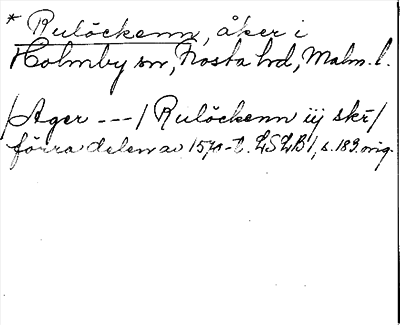 * Rulöckenn, åker i
Holmby sn, Frosta hd, Malm. l.
/Ager ---/ Rulöckenn iij skr/
förra delen av 1570-t. LSLB 1, s. 189. orig.